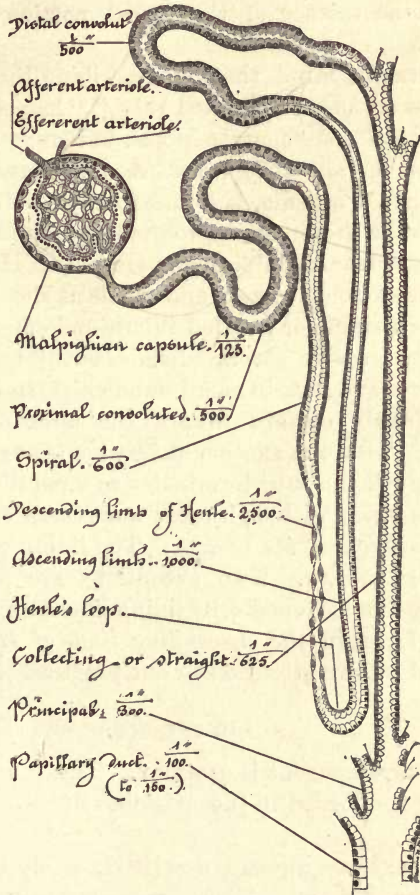 Distal convolut
1"/500
Afferent arteriole.
Effererent arteriole.
Malpighian capsule. 1"/125.
Proximal convoluted. 1"/500
Spiral. 1"/600
Descending limb of Henle. 1"/2,500
Ascending limb. 1"/1,000.
Henle's loop.
Collecting or straight. 1"/625.
Principal. 1"/300.
Papillary duct. 1"/100.
(to 1"/150.).